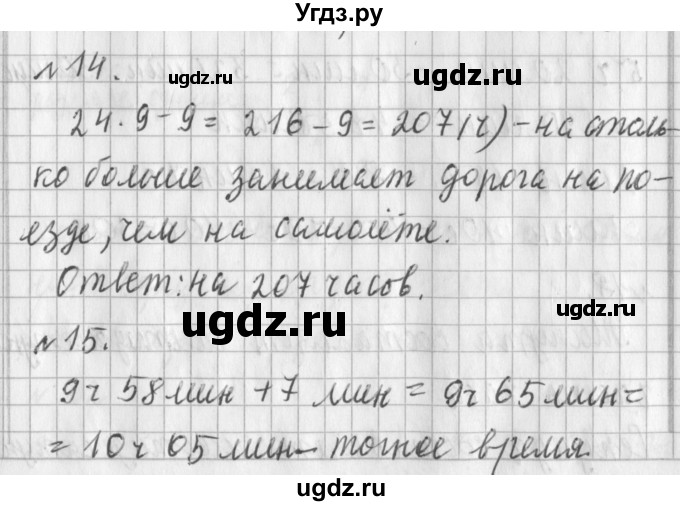 Угдз.ру
№14.
ugdz.ru
ugdz.ru
24·9-9=216-9=207(ч)-на столь-
ко больше занимает дорога на по-
езде, чем на самолёте.
Ответ: на 207 часов.
ugdz.ru
ugdz.ru
№15.
9ч 58мин + 7 мин = 9ч 65мин=
= 10ч 05мин- точное время.
ugdz.ru